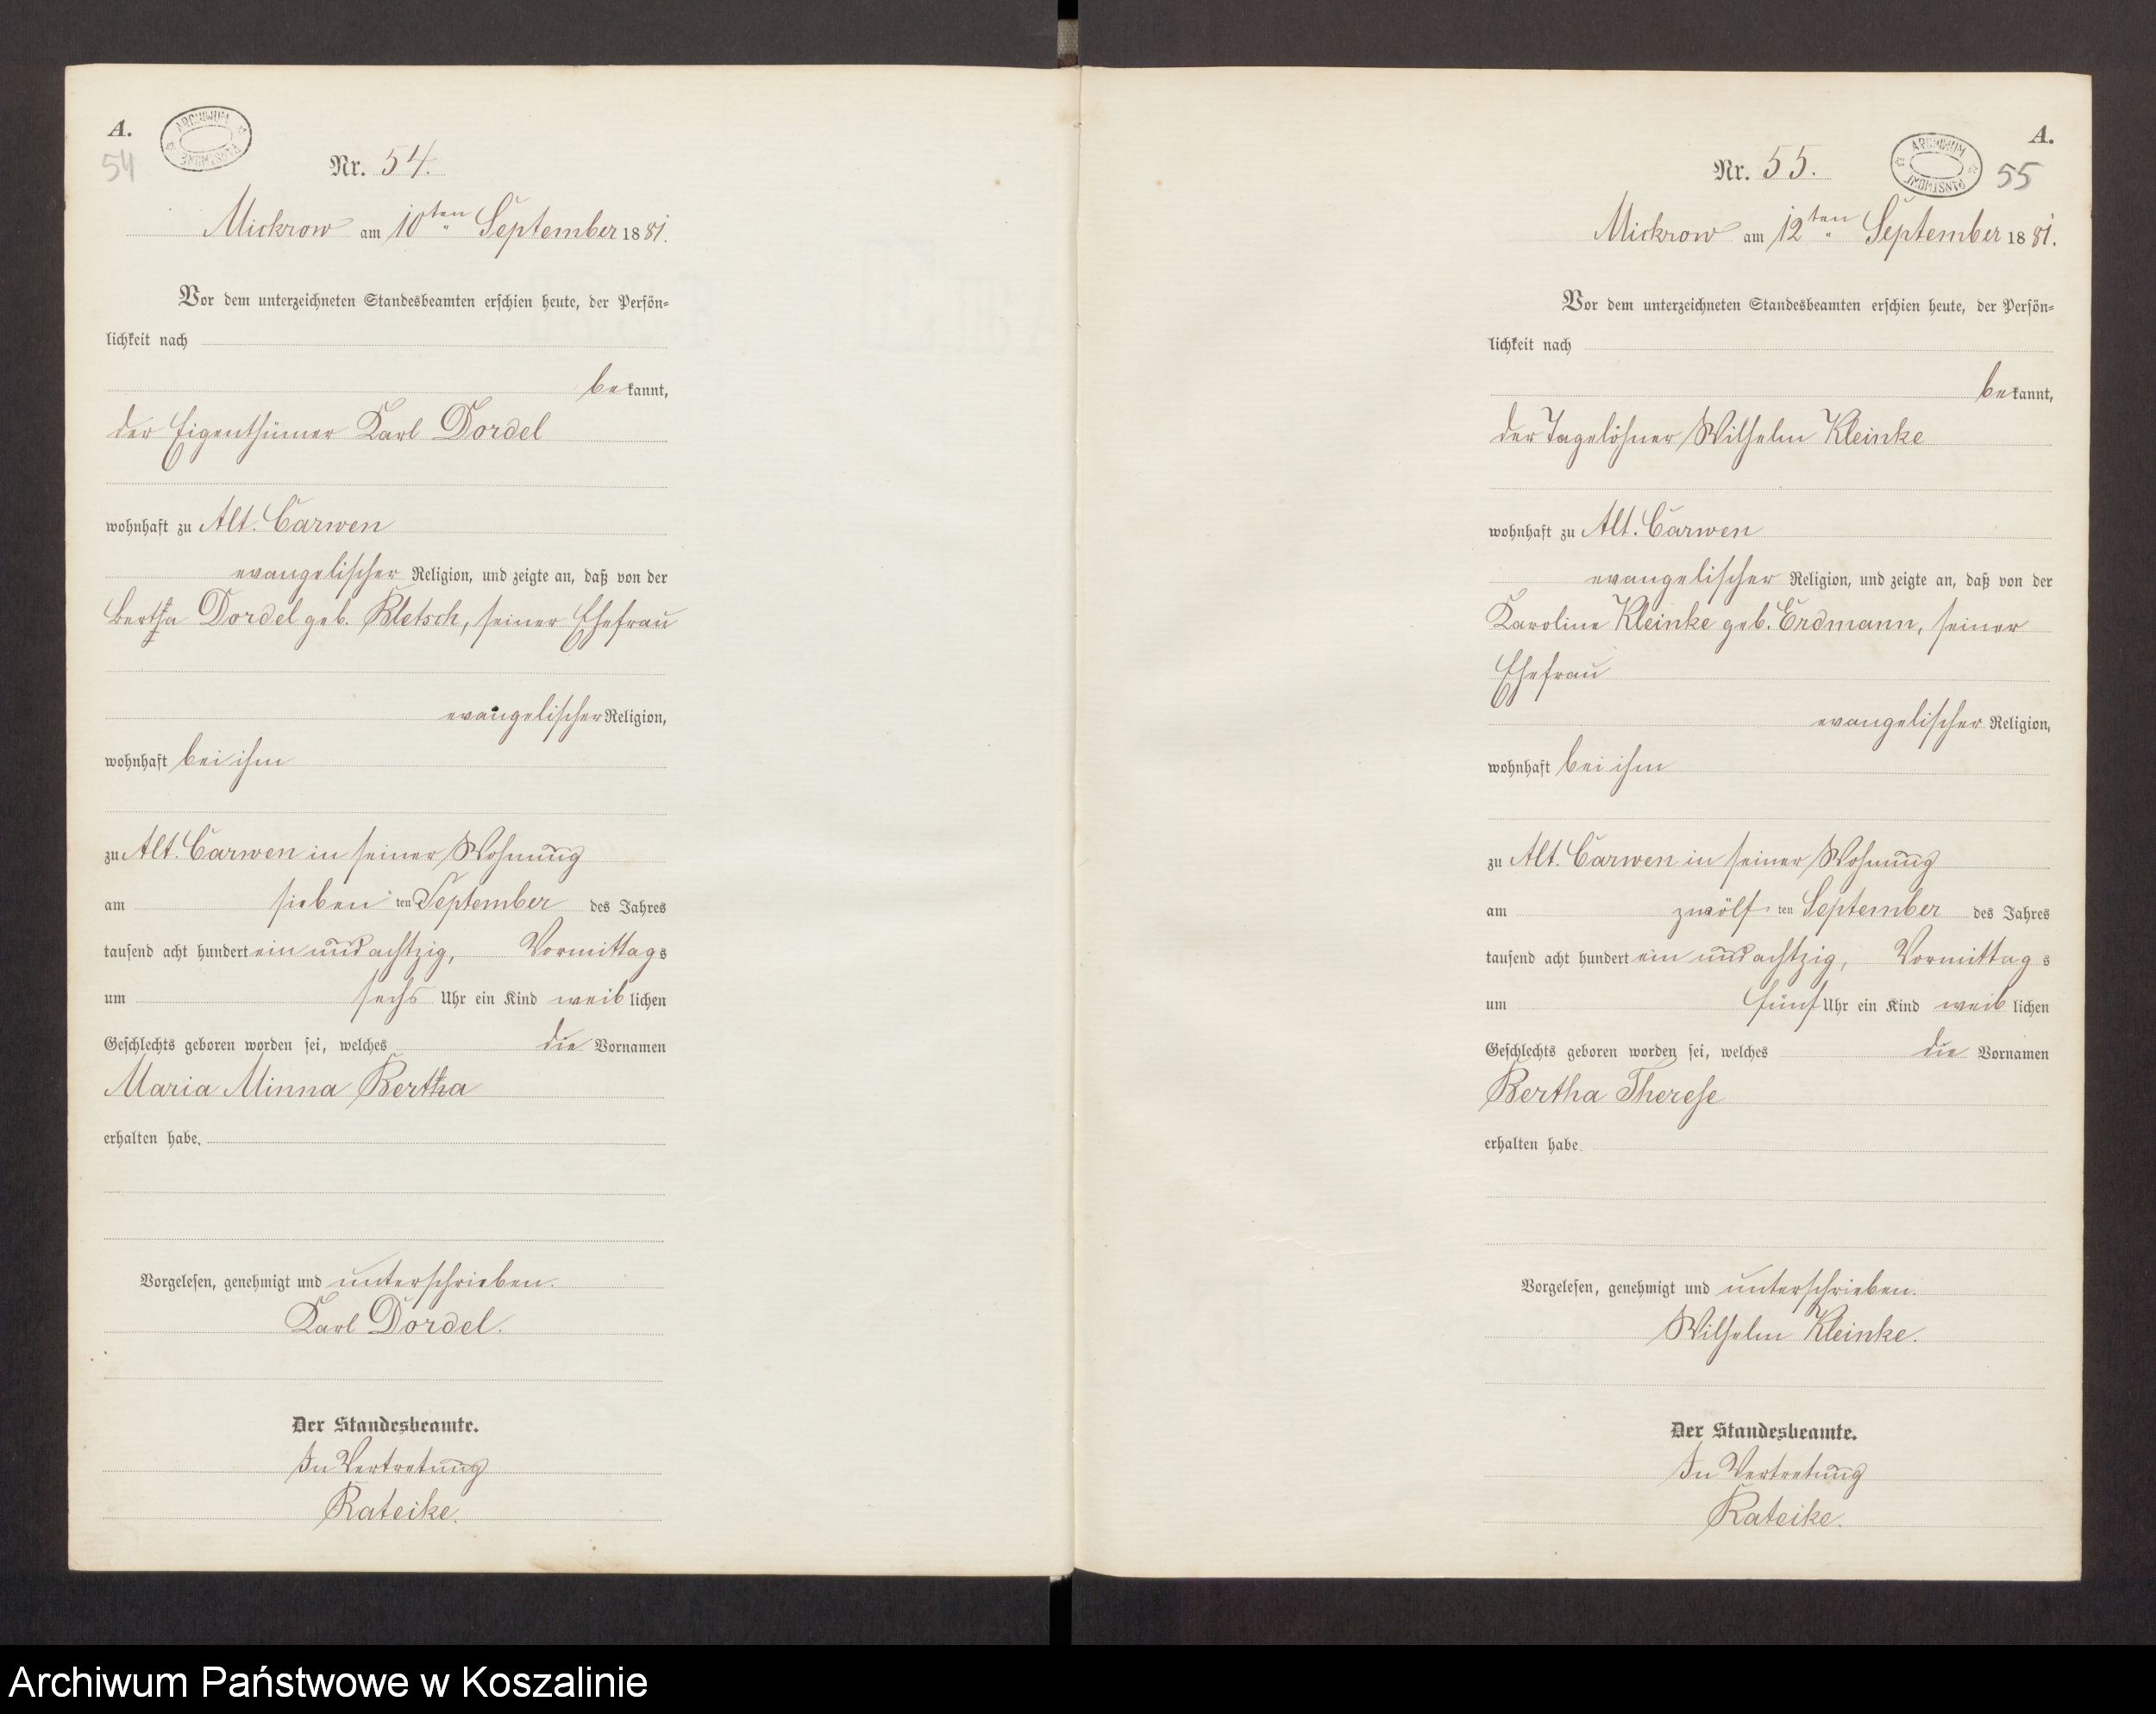 A.
ARCHIWUM PAŃSTWOWE
54
Nr. 54.
Mickrow am 10ten September 1881.
Vor dem unterzeichneten Standesbeamten erschien heute, der Persön=
lichkeit nach
bekannt,
der Eigenthümer Karl Dordel
wohnhaft zu Alt. Carwen
evangelischer Religion, und zeigte an, daß von der
Bertha Dordel geb. Kletsch, seiner Ehefrau
evangelischer Religion,
wohnhaft bei ihm
zu Alt. Carwen in seiner Wohnung
am sieben ten September des Jahres
tausend acht hundert ein und achtzig, Vormittags
um sechs Uhr ein Kind weiblichen
Geschlechts geboren worden sei, welches die Vornamen
Maria Minna Bertha
erhalten habe.
Vorgelesen, genehmigt und unterschrieben.
Karl Dordel.
Der Standesbeamte.
In Vertretung
Rateike.
A.
ARCHIWUM PAŃSTWOWE
55
Nr. 55.
Mickrow am 12ten September 1881.
Vor dem unterzeichneten Standesbeamten erschien heute, der Persön=
lichkeit nach
bekannt,
der Tagelöhner Wilhelm Kleinke
wohnhaft zu Alt. Carwen
evangelischer Religion, und zeigte an, daß von der
Karoline Kleinke geb. Erdmann, seiner
Ehefrau
evangelischer Religion,
wohnhaft bei ihm
zu Alt. Carwen in seiner Wohnung
am zwölf ten September des Jahres
tausend acht hundert ein und achtzig, Vormittags
um fünf Uhr ein Kind weiblichen
Geschlechts geboren worden sei, welches die Vornamen
Bertha Therese
erhalten habe.
Vorgelesen, genehmigt und unterschrieben.
Wilhelm Kleinke.
Der Standesbeamte.
In Vertretung
Rateike.
Archiwum Państwowe w Koszalinie